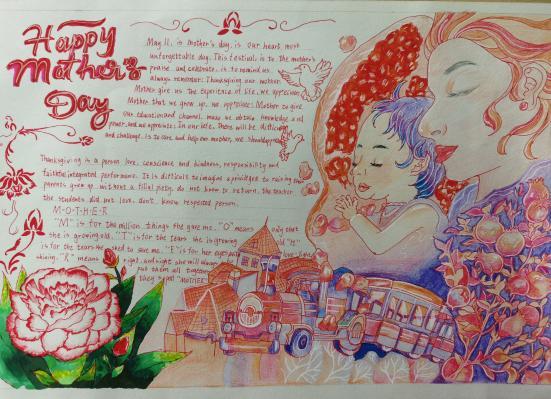 Happy
Mother's
Day
May 11, is mother's day, is our heart most
unforgettable day. This festival is to the mother's
praise and celebrate, is to remind us
always remember: Thanksgiving our mother.
Mother give us the experience of life, we appreciate
Mother that we grow up, we appreciate; Mother to give
our education and channel, make we obtain knowledge and
power, and we appreciate; In our life, there will be difficulty
and challenge, is to care and help our mother, we should appreciate
Thanksgiving is a person love, conscience and kindness, responsibility and
faithful integrated performance. It is difficult to imagine a privileged to raising their
parents grew up, without a filial piety, do not know to return, the teacher
the students did not love, don't know respected person.
M-O-T-H-E-R
"M" is for the million things she gave me. "O" means only that
she is growing old. "T" is for the tears she is growing "H"
is for the tears she shed to save me. "E" is for her eyes with love-light
shining. "R" means right, and right she will always
put them all together
they spell "MOTHER"